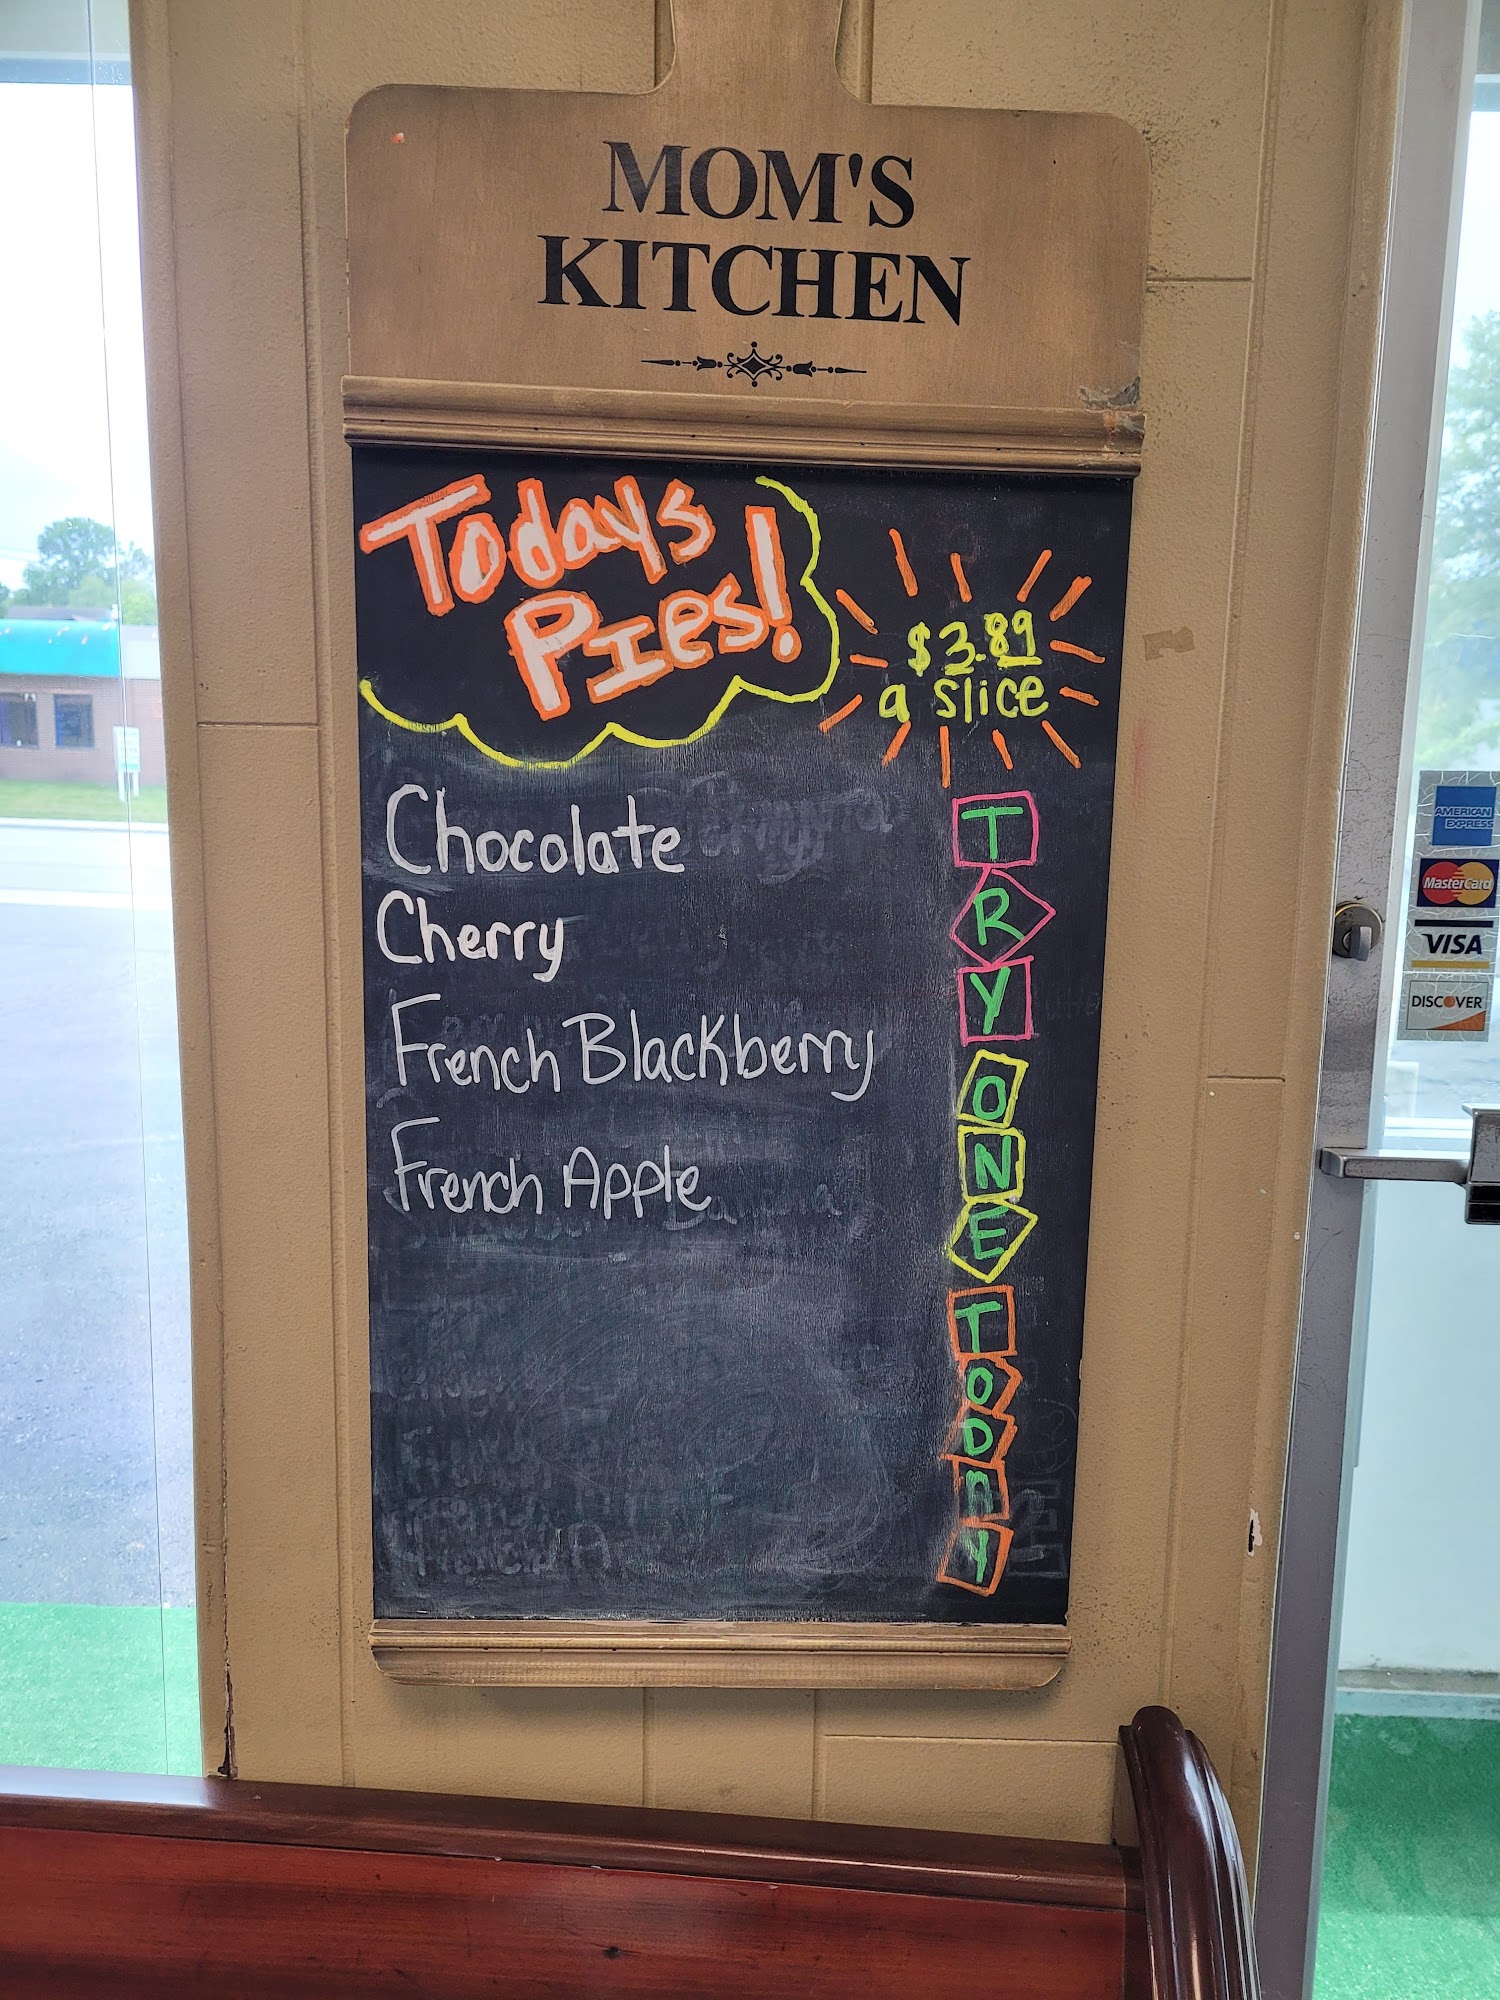 MOM'S
KITCHEN
Todays
PIes!
$3.89
a slice
Chocolate
Cherry
French Blackberry
French Apple
TRY
ONE
TODAY
AMERICAN
EXPRESS
MasterCard
VISA
DISCOVER